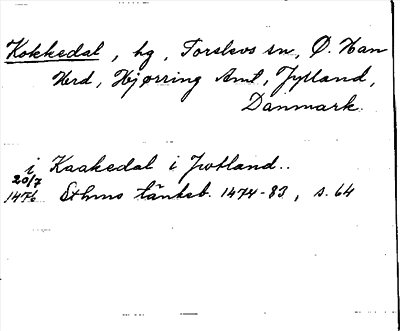 Kokkedal, hg, Torslevs sn, Ø. Han
Hrd, Hjørring Amt, Jylland,
Danmark.
i Kaakedal i Jwtland..
20/7
1476 Sthms tänkeb. 1474-83, s. 64